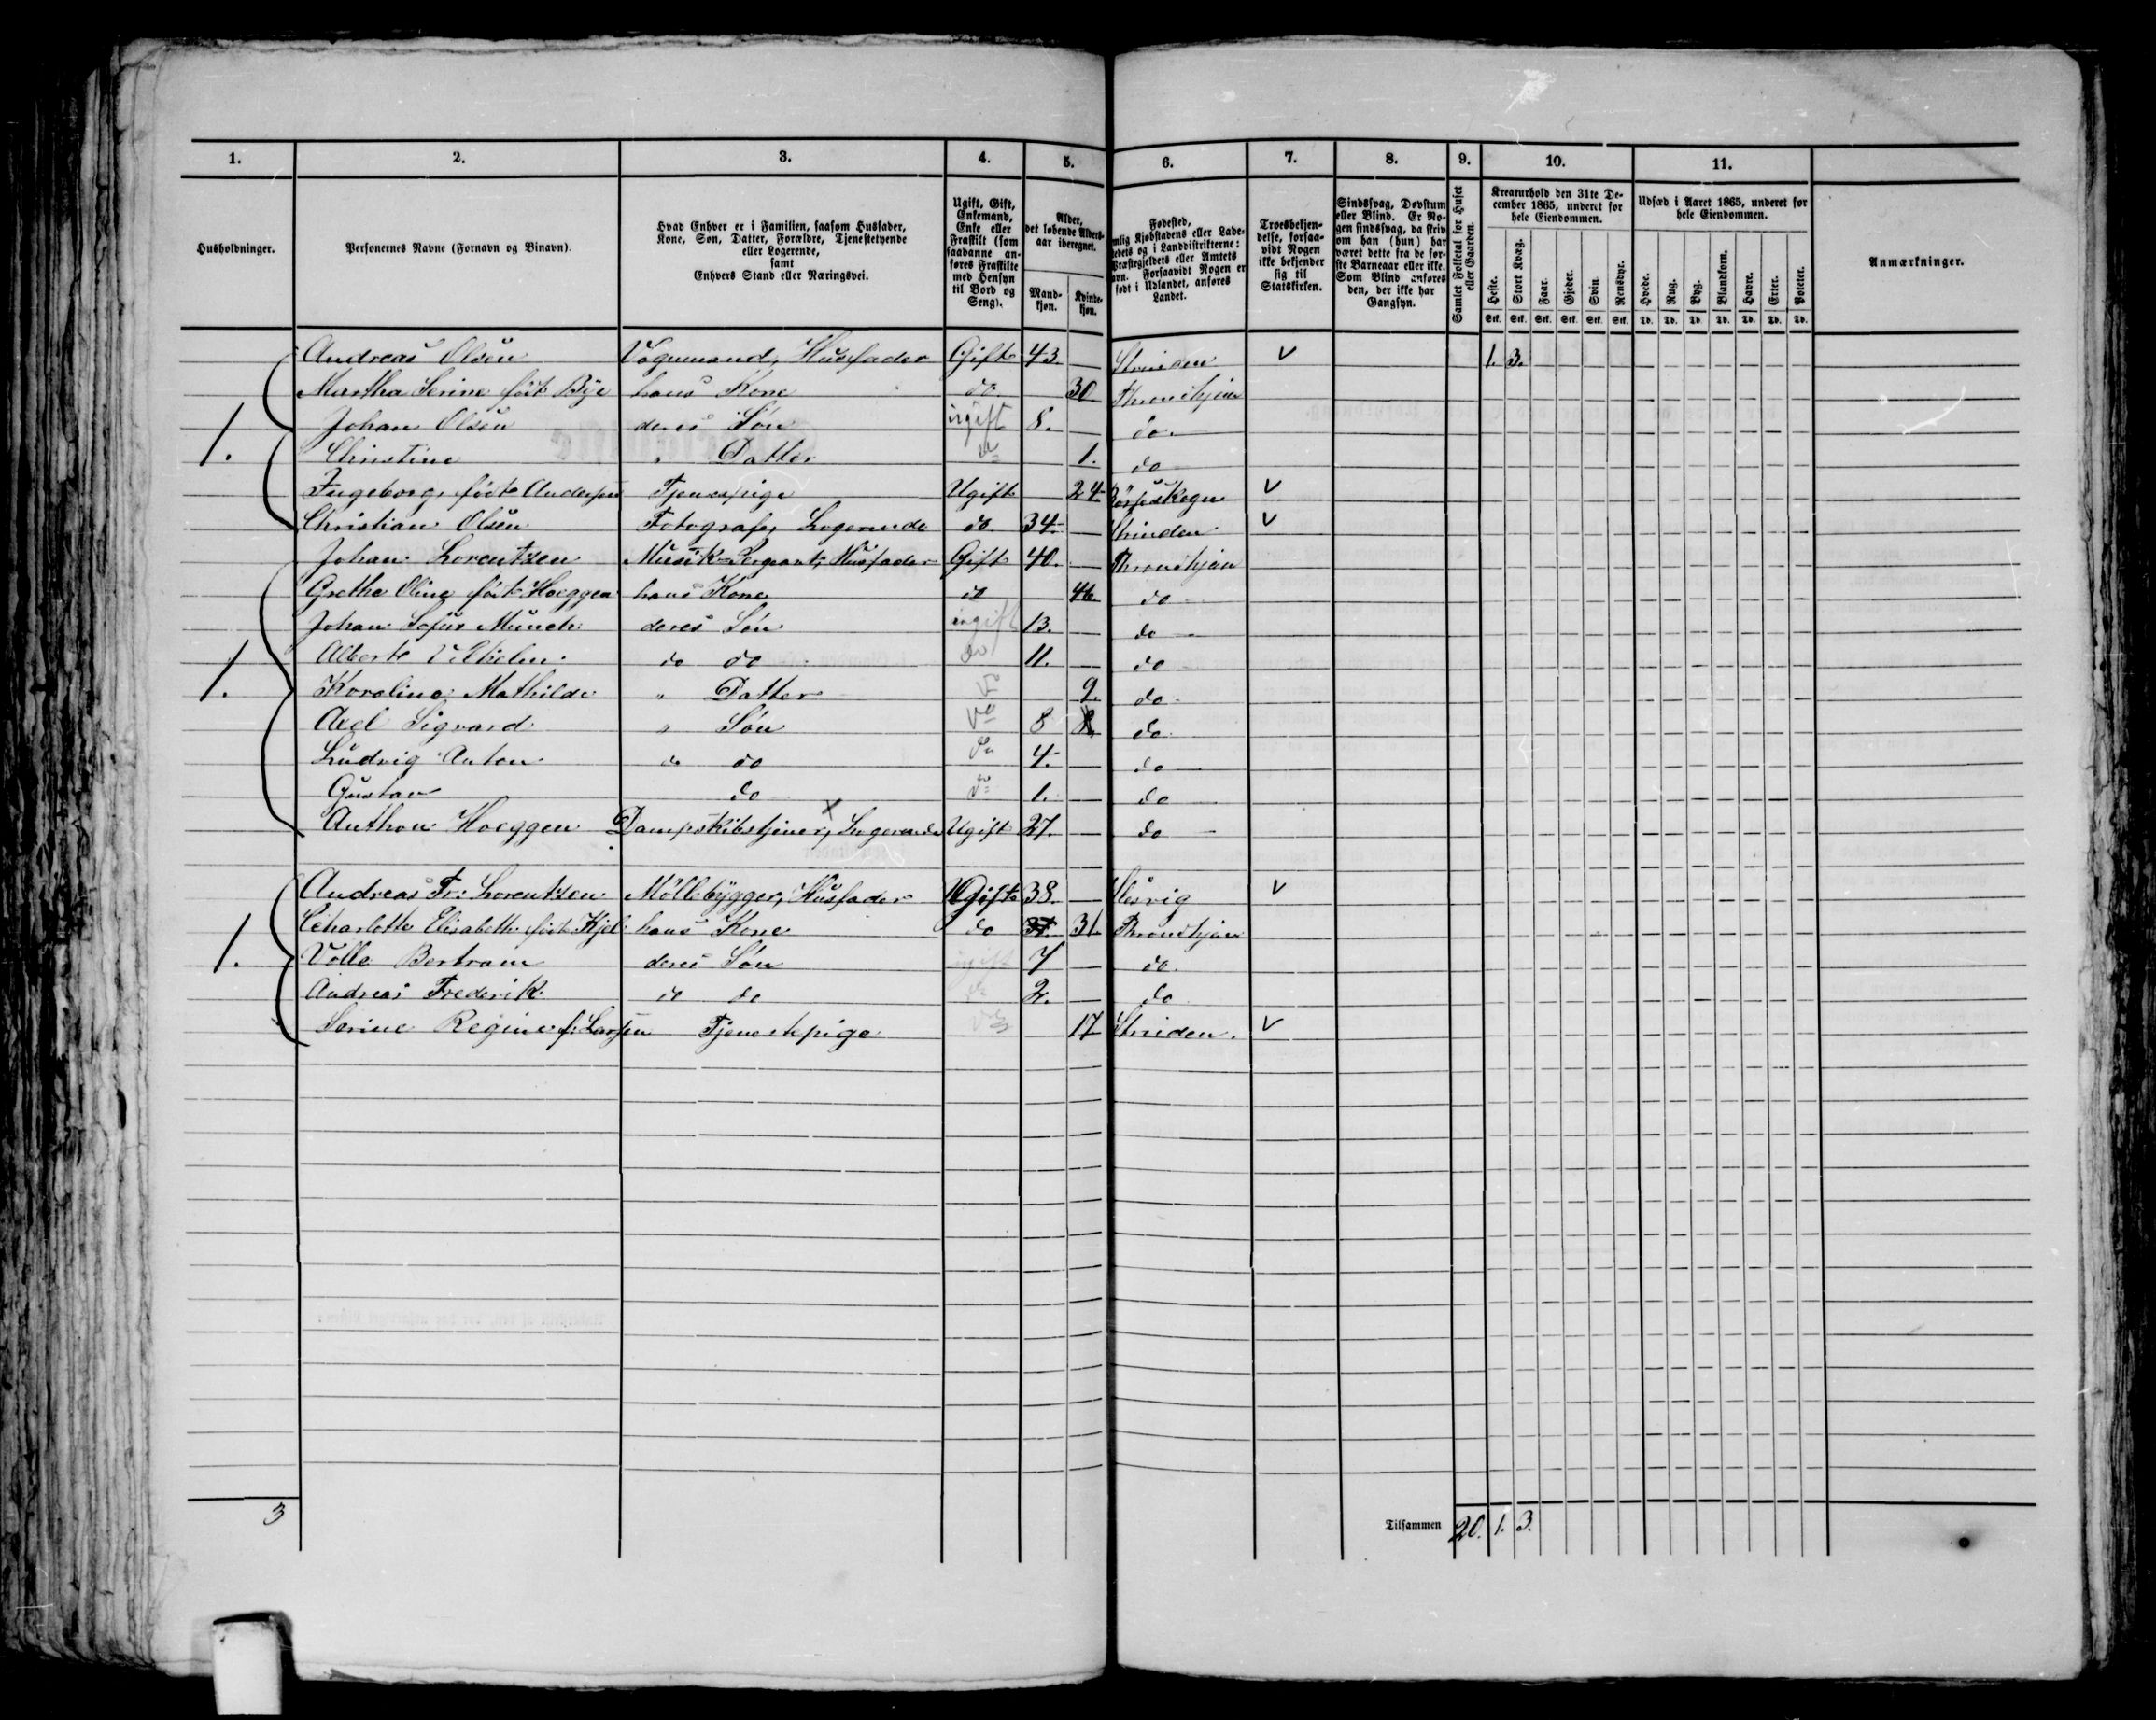 1. 2. 3. 4. 5. 6. 7. 8. 9. 10. 11.
Husholdninger.
Personernes Navne (Fornavn og Binavn).
Hvad Enhver er i Familien, saasom Husfader,
Kone, Søn, Datter, Forældre, Tjenestetyende
eller Logerende,
samt
Enhvers Stand eller Næringsvei.
Ugift, Gift,
Enkemand,
Enke eller
Fraskilt (som
saadanne an-
føres Fraskilte
med Hensyn
til Bord og
Seng).
Alder,
det løbende Alders-
aar iberegnet.
Mand-
kjøn.
Kvinde-
kjøn.
Fødested,
Kjøbstadens eller Lade-
stedets og i Landdistrikterne:
Præstegjeldets eller Amtets
Navn. Forsaavidt Nogen er
født i Udlandet, anføres
Landet.
Troesbekjen-
delse, forsaa-
vidt Nogen
ikke bekjender
sig til
Statskirken.
Sindssvag, Døvstum
eller Blind. Er No-
gen sindssvag, da skriv
om han (hun) har
været dette fra de før-
ste Barneaar eller ikke.
Som Blind anføres
den, der ikke har
Gangsyn.
Gamlet Folketal for Huset
eller Gaarden.
Kreaturhold den 31te De-
cember 1865, underet for
hele Eiendommen.
Heste. Stort Kvæg. Faar. Gjeder. Svin. Rensdyr.
Stk. Stk. Stk. Stk. Stk. Stk.
Udsæd i Aaret 1865, underet for
hele Eiendommen.
Hvede. Rug. Byg. Blandkorn. Havre. Erter. Poteter.
Td. Td. Td. Td. Td. Td. Td.
Anmærkninger.
Andreas Olsen Vognmand, Husfader Gift 43. Strinden v 1. 3.
Martha Serine født Bye hans Kone do 30 Throndhjem
Johan Olsen deres Søn ugift 8. do.
1. Christine " Datter do 1. do
Ingeborg, født Andersen Tjenespige Ugift 24 Børseskogn v
Christian Olsen Fotograf, Logerende do. 34. Strinden v
Johan Lorentzen Musik-Sergeant, Husfader Gift 40. Throndhjem
Grethe Oline født Hoeggen hans Kone do 46. do
Johan Sofus Munch deres Søn ugift 13. do
Alberte Vilhelm do do do 11. do
1. Karoline Mathilde " Datter do 9. do
Axel Sigvard " Søn do 8 8 do
Ludvig Anton do do do 4. do
Gustav do do 1. do
Anthon Hoeggen Dampskibstjener, Logerende Ugift 27. do
Andreas Fr: Lorentzen Møllebygger, Husfader Gift 38. Slesvig v
Charlotte Elisabeth født Kjel hans Kone do 31 31. Throndhjem
1. Volle Bertram deres Søn ugift 7 do.
Andreas Frederik do do do 2. do
Serine Regine f: Larsen Tjenestepige do 17 Strinden. v
3 Tilsammen 20. 1. 3.